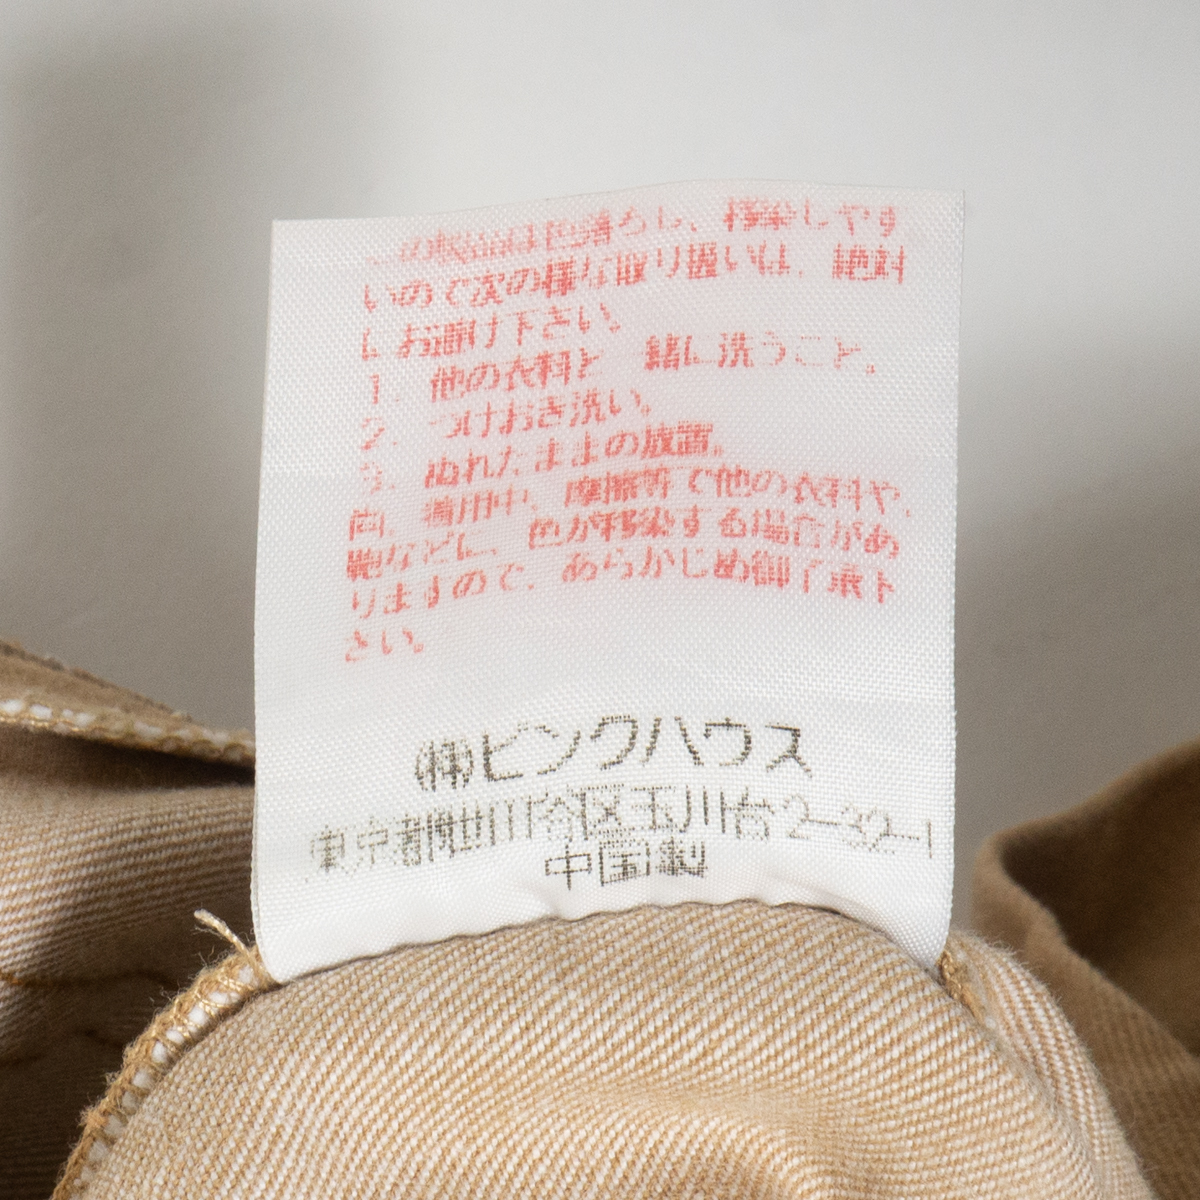 この製品は色落ちし、移染しやす
いので次の様な取り扱いは、絶対
にお避け下さい。
1. 他の衣料と一緒に洗うこと。
2. つけおき洗い。
3. ぬれたままの放置。
尚、着用中、摩擦等で他の衣料や、
鞄などに、色が移染する場合があ
りますので、あらかじめ御了承下
さい。
㈱ピンクハウス
東京都世田谷区玉川台2-32-1
中国製